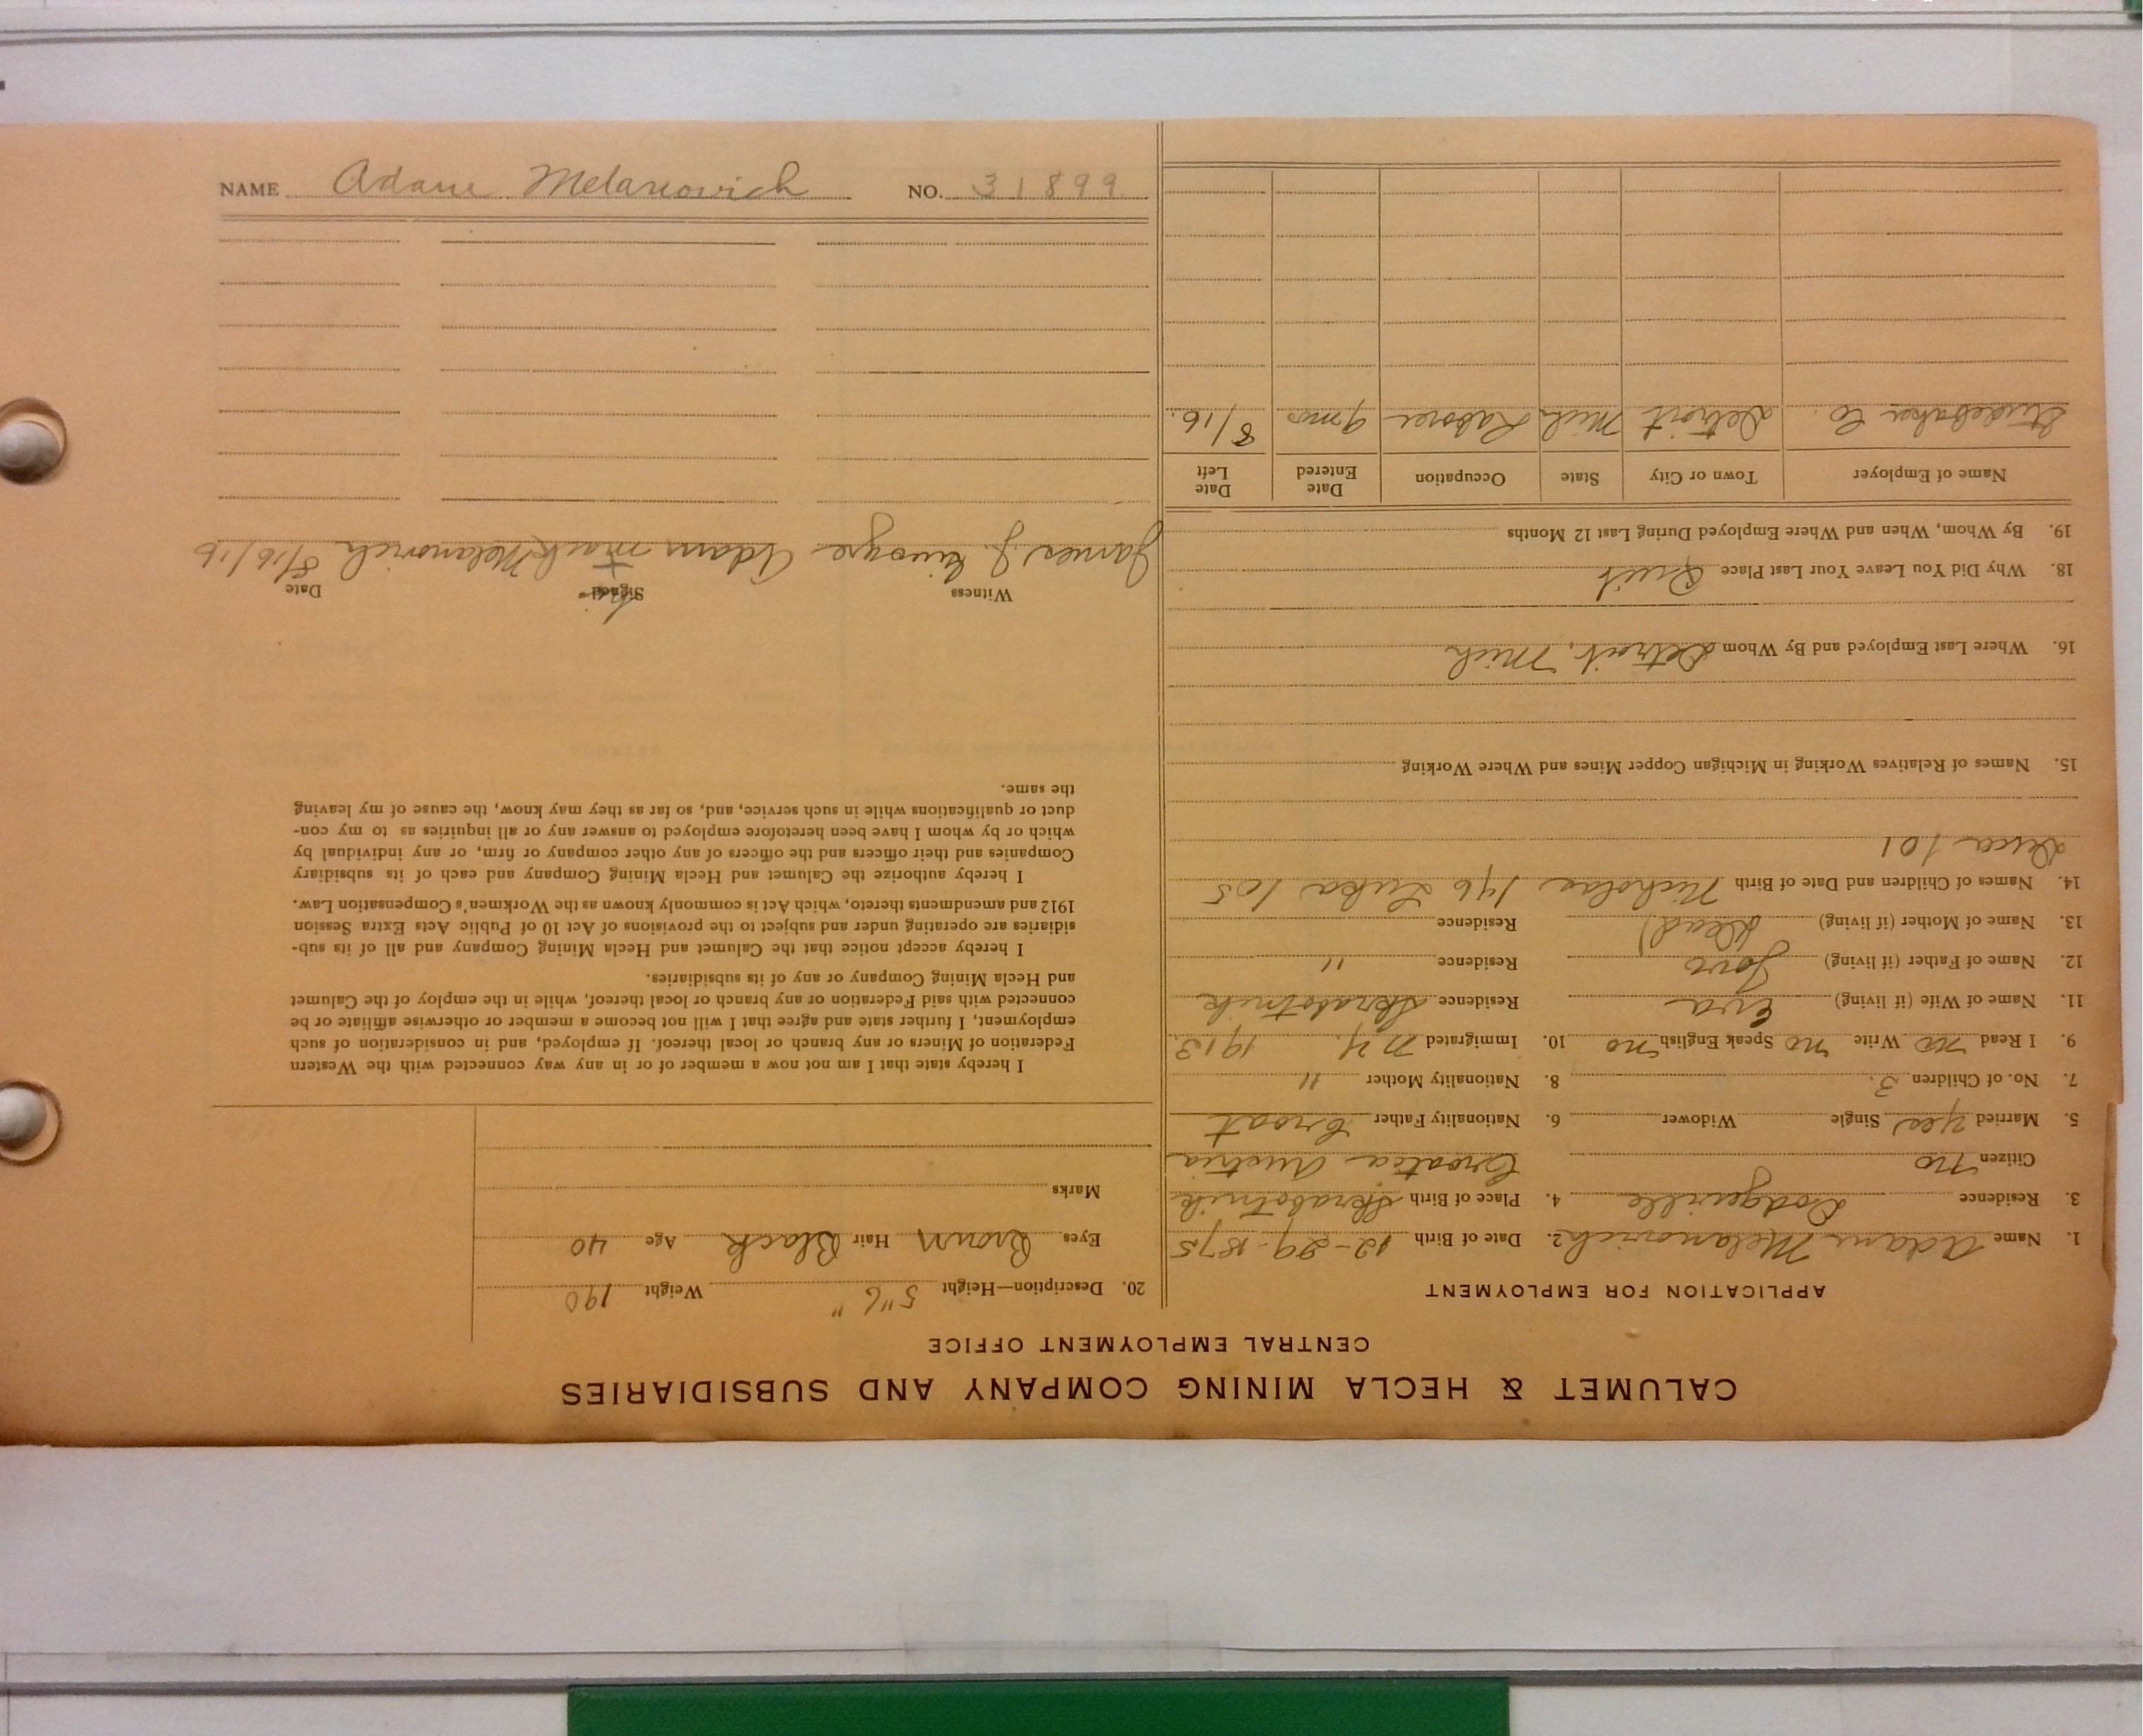 CALUMET & HECLA MINING COMPANY AND SUBSIDIARIES
CENTRAL EMPLOYMENT OFFICE
APPLICATION FOR EMPLOYMENT
1. Name Adam Melanovich 2. Date of Birth 12-29-1875
3. Residence Dodgeville 4. Place of Birth Skrabotnik
Citizen no Croatia Austria
5. Married Yes Single Widower 6. Nationality Father Croat
7. No. of Children 3. 8. Nationality Mother "
9. I Read no Write no Speak English no 10. Immigrated N.Y. 1913.
11. Name of Wife (if living) Eva Residence Skrabotnik
12. Name of Father (if living) Jovo Residence "
13. Name of Mother (if living) (Dead) Residence
14. Names of Children and Date of Birth Nicholas 146 Luka 105
101
15. Names of Relatives Working in Michigan Copper Mines and Where Working
16. Where Last Employed and By Whom Detroit, Mich
18. Why Did You Leave Your Last Place Quit
19. By Whom, When and Where Employed During Last 12 Months
Name of Employer Town or City State Occupation Date Entered Date Left
Studebaker Co. Detroit Mich Laborer 9 mos 8/16.
20. Description—Height 5"6" Weight 190
Eyes Brown Hair Black Age 40
Marks
I hereby state that I am not now a member of or in any way connected with the Western
Federation of Miners or any branch or local thereof. If employed, and in consideration of such
employment, I further state and agree that I will not become a member or otherwise affiliate or be
connected with said Federation or any branch or local thereof, while in the employ of the Calumet
and Hecla Mining Company or any of its subsidiaries.
I hereby accept notice that the Calumet and Hecla Mining Company and all of its sub-
sidiaries are operating under and subject to the provisions of Act 10 of Public Acts Extra Session
1912 and amendments thereto, which Act is commonly known as the Workmen's Compensation Law.
I hereby authorize the Calumet and Hecla Mining Company and each of its subsidiary
Companies and their officers and the officers of any other company or firm, or any individual by
which or by whom I have been heretofore employed to answer any or all inquiries as to my con-
duct or qualifications while in such service, and, so far as they may know, the cause of my leaving
the same.
Witness Signed Date
his
James J. Adam + mark Melanovich 8/16/16
NAME Adam Melanovich NO. 31899